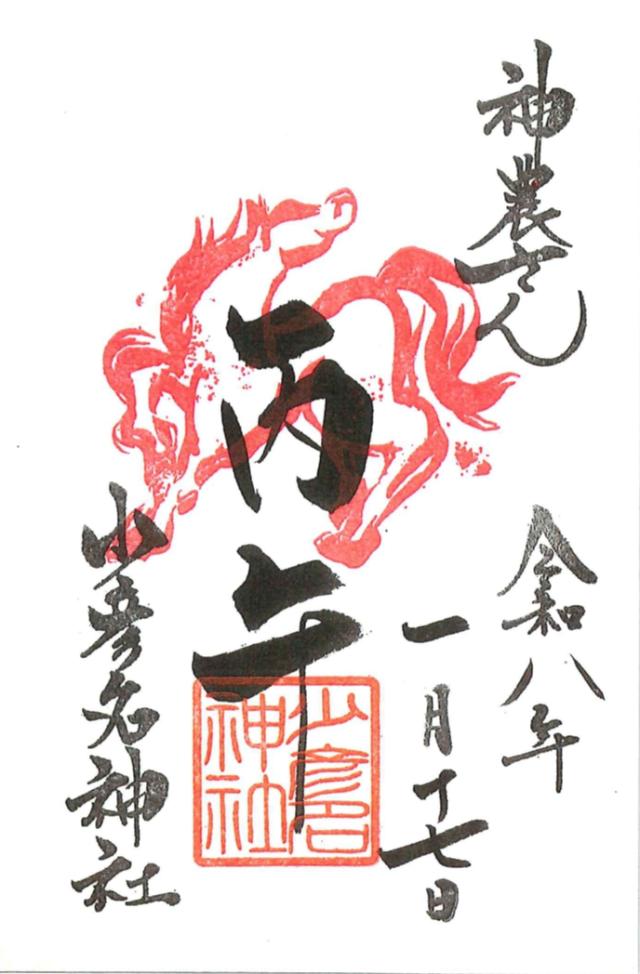 神農さん
令和八年
一月十七日
丙午
少彦名神社
少彦名神社